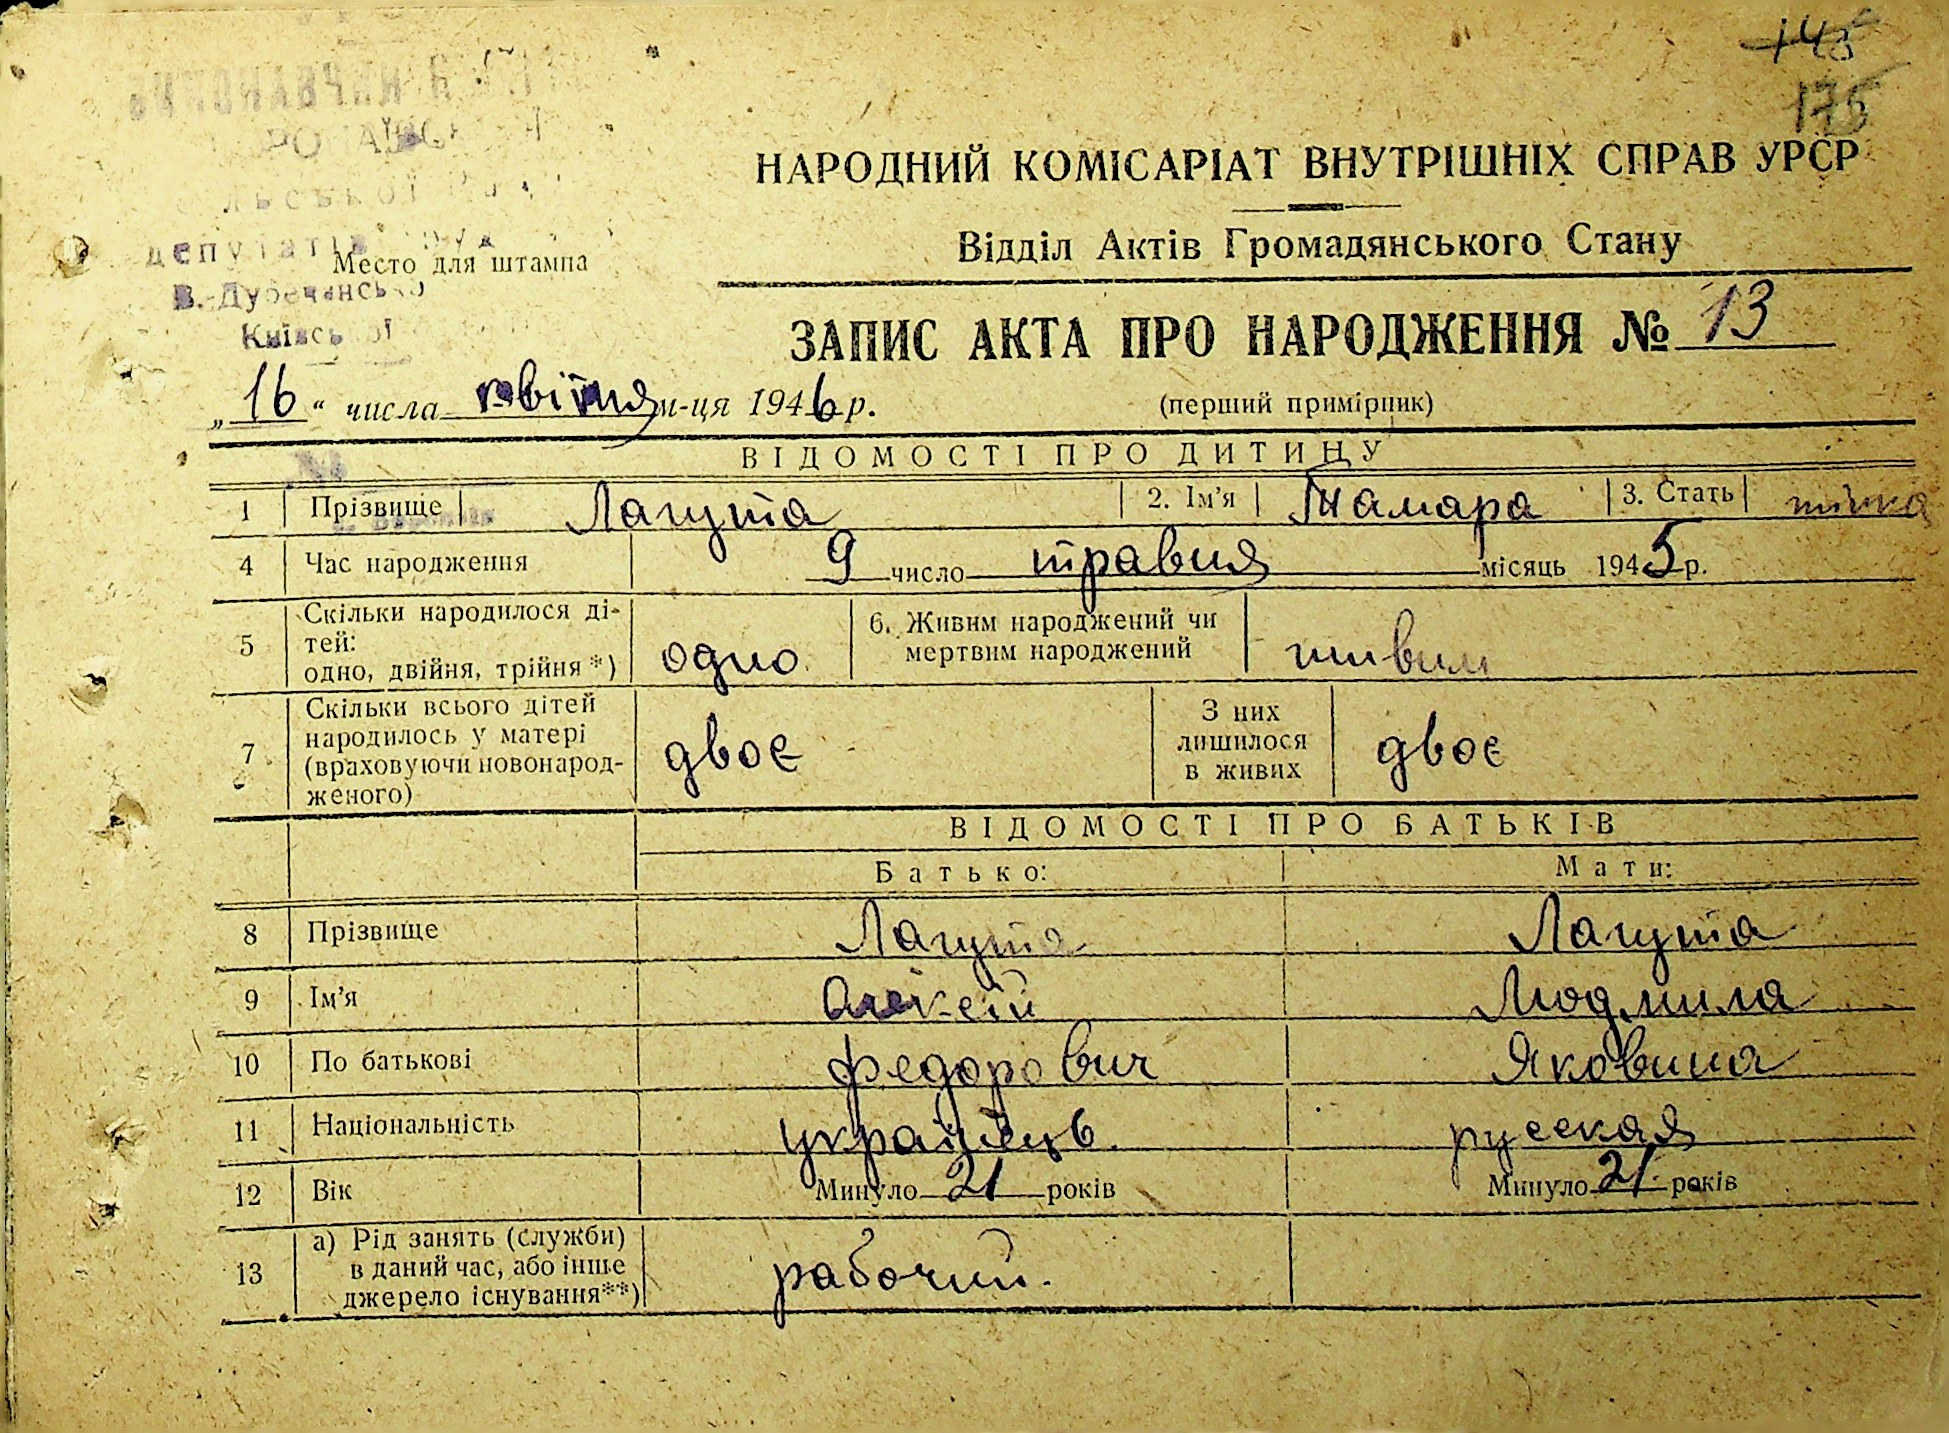 175
НАРОДНИЙ КОМІСАРІАТ ВНУТРІШНІХ СПРАВ УРСР
Відділ Актів Громадянського Стану
депутатів
Место для штампа
В.-Дубечансько
Київської
ЗАПИС АКТА ПРО НАРОДЖЕННЯ № 13
„16“ числа квітня м-ця 1946 р.
(перший примірник)
ВІДОМОСТІ ПРО ДИТИНУ
1 Прізвище Лагута 2. Ім'я Тамара 3. Стать
4 Час народження 9 число травня місяць 1945 р.
5 Скільки народилося ді-
тей:
одно, двійня, трійня*) одно
6. Живим народжений чи
мертвим народжений живим
7 Скільки всього дітей
народилось у матері
(враховуючи новонарод-
женого) двоє
З них
лишилося
в живих двоє
ВІДОМОСТІ ПРО БАТЬКІВ
Батько: Мати:
8 Прізвище Лагута Лагута
9 Ім'я Алексій Людмила
10 По батькові Федорович Яковина
11 Національність українець. русская
12 Вік Минуло 21 років Минуло 21 років
13 а) Рід занять (служби)
в даний час, або інше
джерело існування**) рабочий.